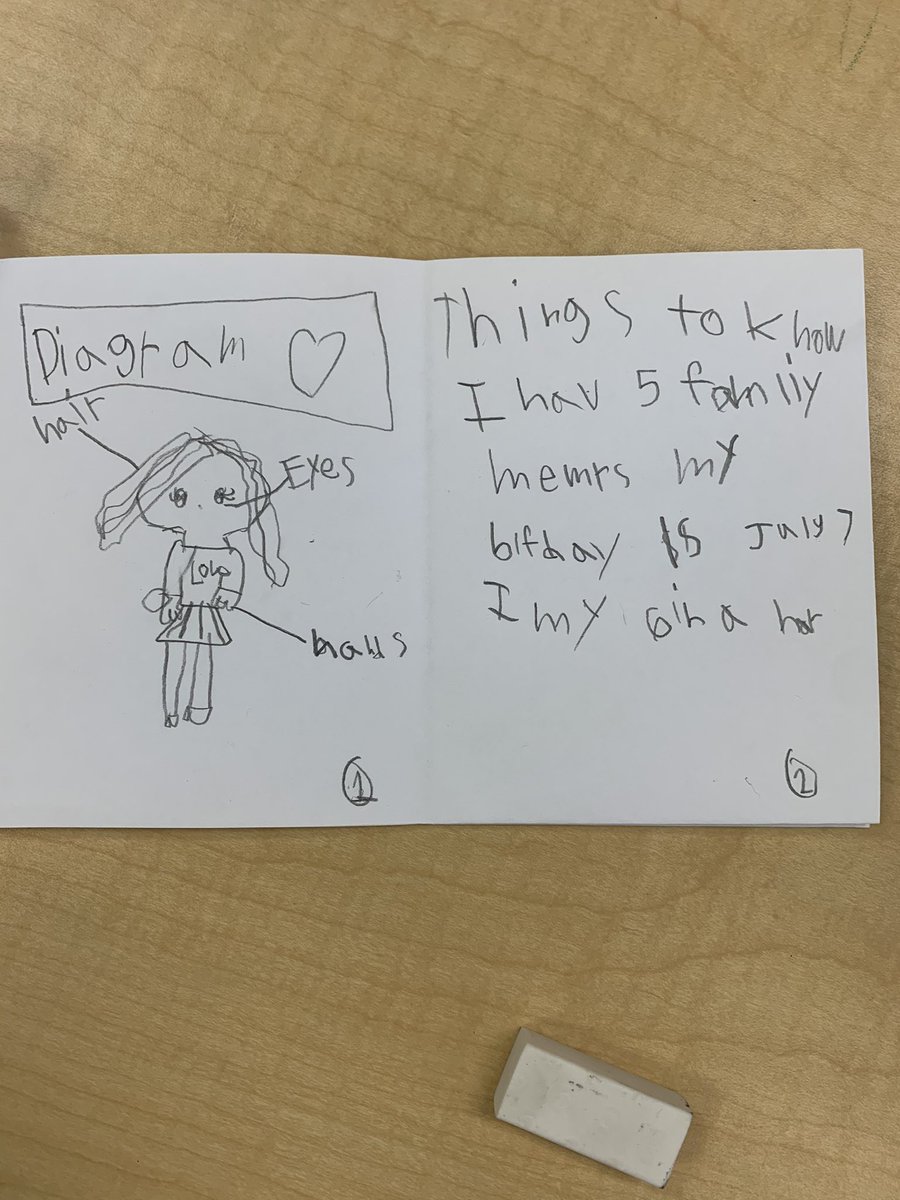 Diagram
hair
Eyes
Love
hands
1
Things to know
I hav 5 family
memrs my
bifday is July 7
I my
a
2